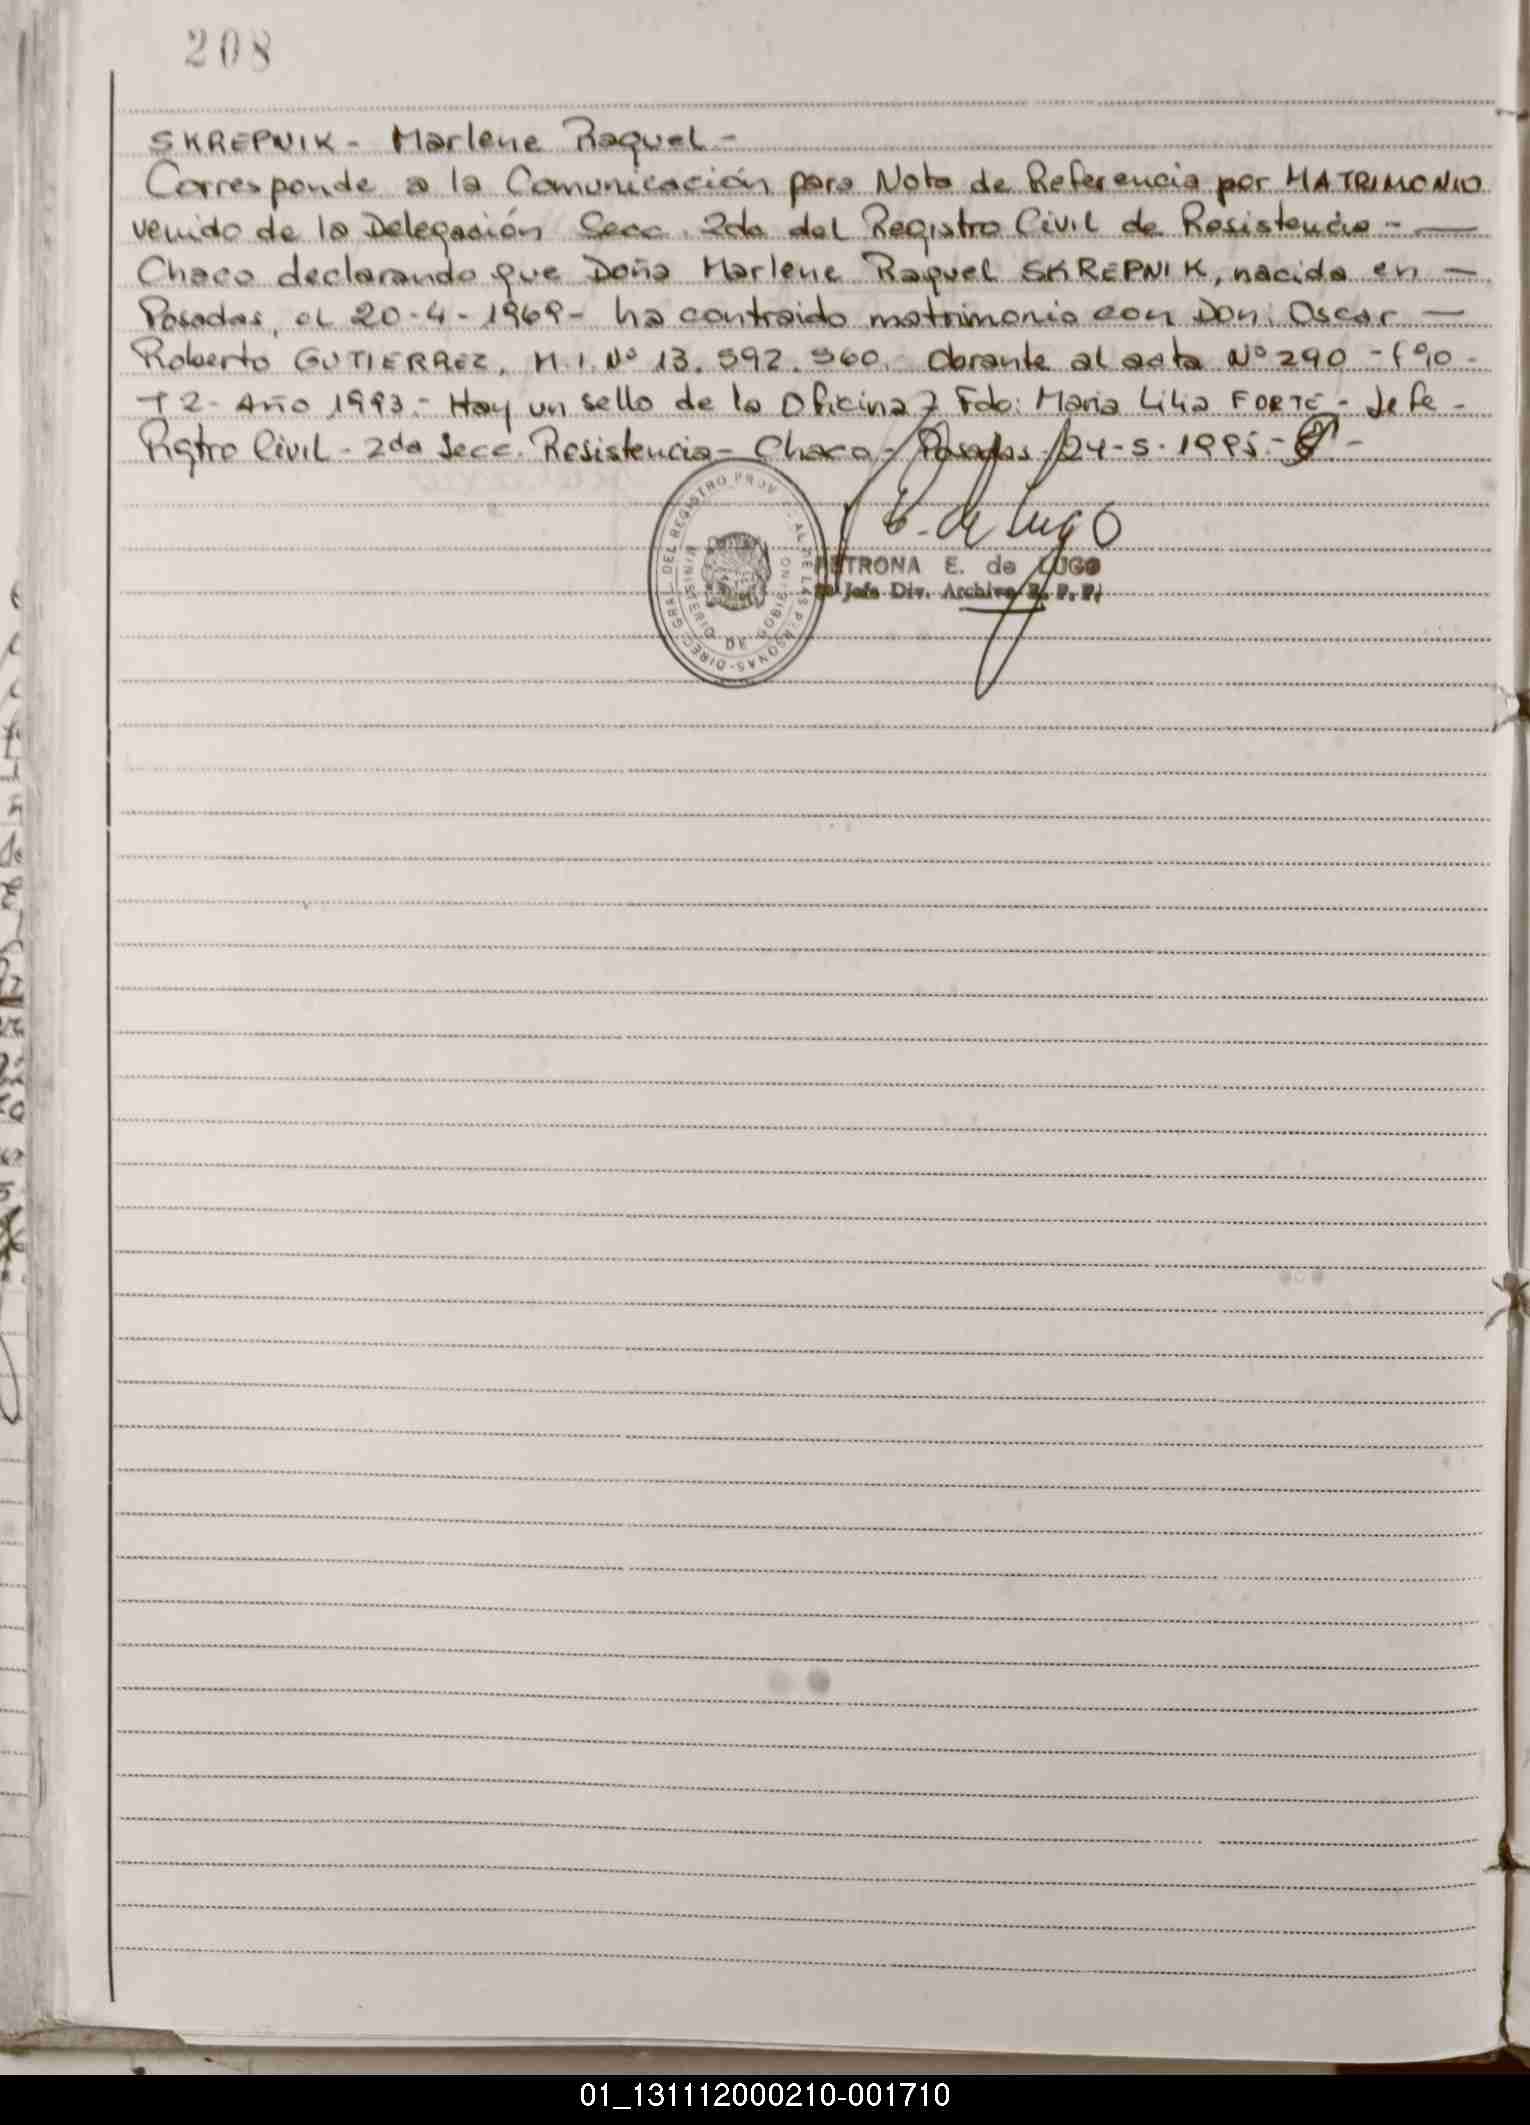 208
SKREPNIK - Marlene Raquel -
Corresponde a la Comunicación para Nota de Referencia por MATRIMONIO
venido de la Delegación Secc. 2da del Registro Civil de Resistencia -
Chaco declarando que Doña Marlene Raquel SKREPNIK, nacida en -
Posadas, el 20-4-1969- ha contraido matrimonio con Don: Oscar -
Roberto GUTIERREZ, M.I. Nº 13.592.560. Obrante al acta Nº 290 - fº90 -
T 2- Año 1993.- Hay un sello de la Oficina Fdo: Maria Lilia FORTE - Jefe -
Rgtro Civil - 2da Secc. Resistencia - Chaco - Posadas 24-5-1995.-
E. de Lugo
PETRONA E. de LUGO
Jefe Div. Archivo R. P. P.
DIREC. GRAL. DEL REGISTRO PROV AL DE LAS PERSONAS
01_131112000210-001710